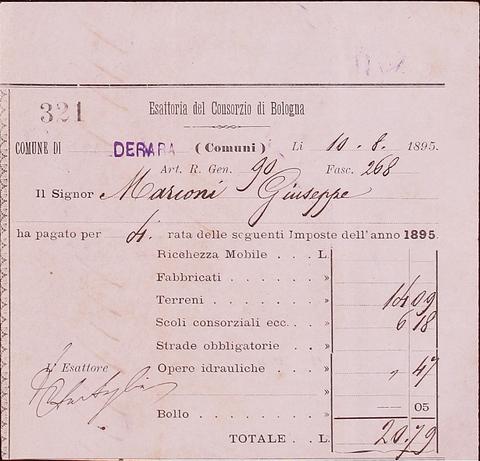 321
Esattoria del Consorzio di Bologna
COMUNE DI (Comuni) Li 10 . 8. 1895.
Art. R. Gen. 90 Fasc. 268
Il Signor Marconi Giuseppe
ha pagato per 4. rata delle seguenti Imposte dell'anno 1895.
Ricchezza Mobile . . . L.
Fabbricati . . . . . . . »
Terreni . . . . . . . . » 14 09
Scoli consorziali ecc. . . » 6 18
Strade obbligatorie . . . »
L' Esattore
Opere idrauliche . . . » , 47
»
Bollo . . . . . . . . » — 05
TOTALE . . L. 20 79